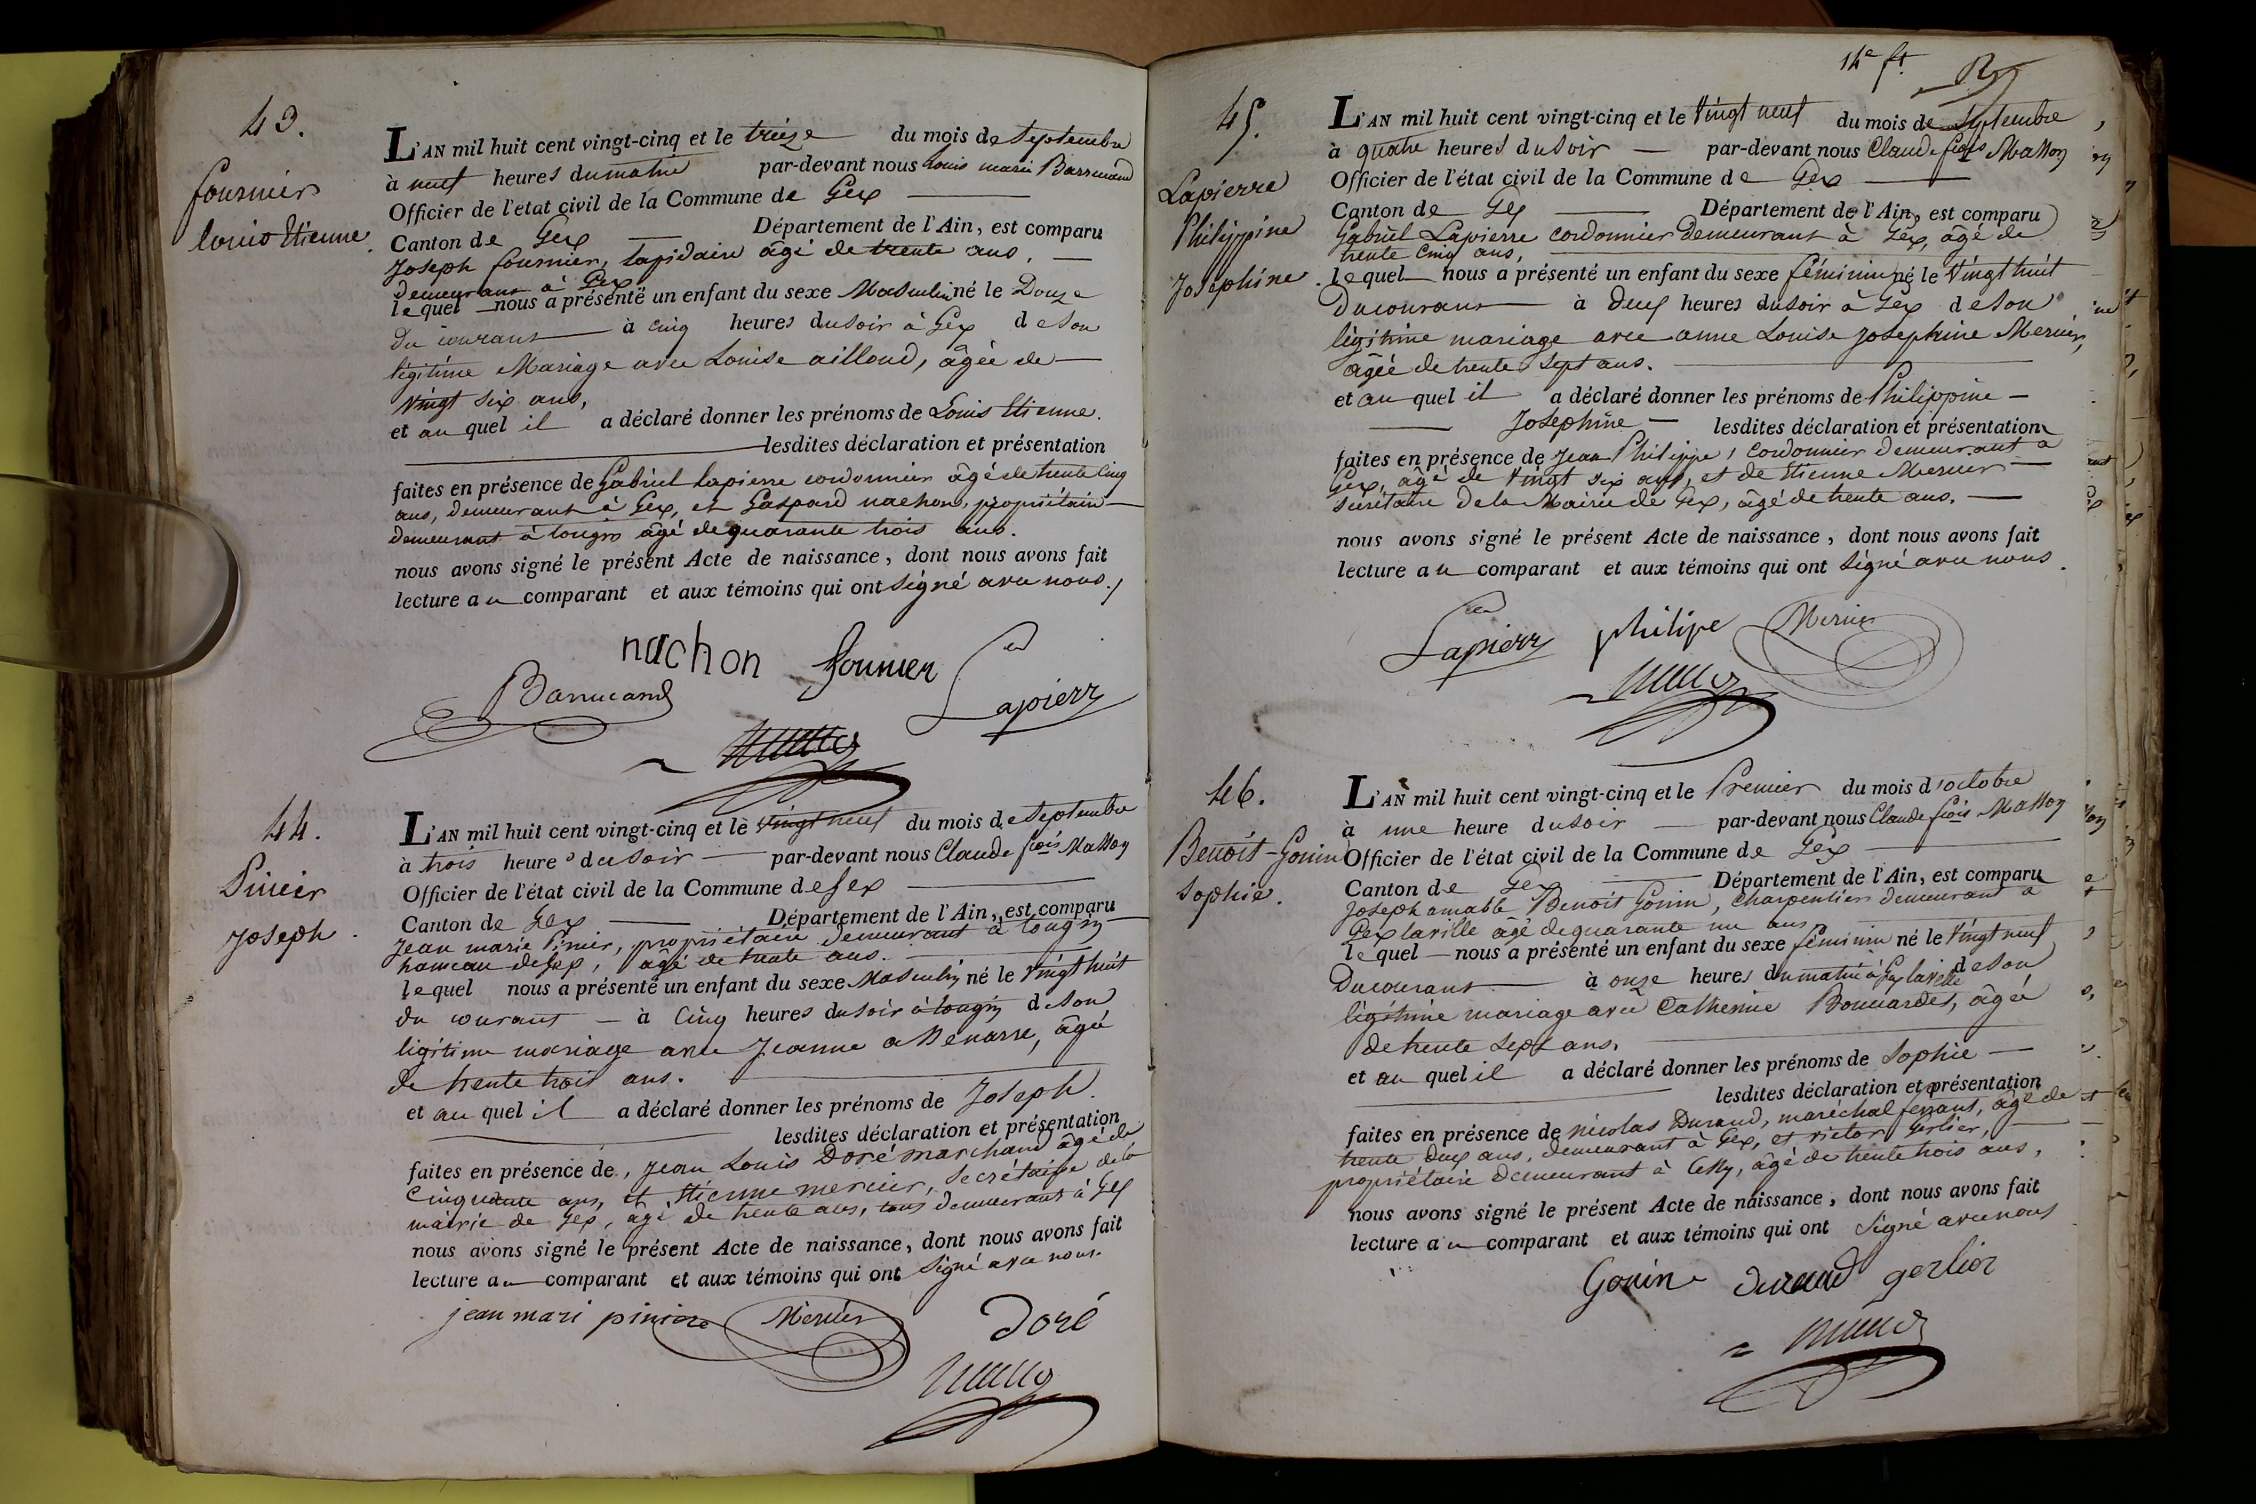 43.
fournier
Louis Etienne.
L'AN mil huit cent vingt-cinq et le treize du mois de Septembre
à neuf heures du matin par-devant nous Louis marie Barrucand
Officier de l'état civil de la Commune de Gex
Canton de Gex Département de l'Ain, est comparu
Joseph fournier, lapidaire âgé de trente ans,
demeurant à Gex
lequel nous a présenté un enfant du sexe Masculin né le Douze
du courant à cinq heures du soir à Gex de son
légitime Mariage avec Louise ailloud, âgée de
vingt six ans,
et au quel il a déclaré donner les prénoms de Louis Etienne.
lesdites déclaration et présentation
faites en présence de Gabriel Lapierre cordonnier âgé de trente cinq
ans, demeurant à Gex, et Gaspard nachon, propriétaire
demeurant à tougin âgé de quarante trois ans.
nous avons signé le présent Acte de naissance, dont nous avons fait
lecture au comparant et aux témoins qui ont signé avec nous.
nachon fournier
Barrucand Lapierre
44.
Pinier
Joseph.
L'AN mil huit cent vingt-cinq et le vingt neuf du mois de Septembre
à trois heures du soir par-devant nous Claude fçois Masson
Officier de l'état civil de la Commune de Gex
Canton de Gex Département de l'Ain, est comparu
Jean marie Pinier, propriétaire demeurant à tougin
hameau de Gex, âgé de trente ans.
lequel nous a présenté un enfant du sexe Masculin né le vingt huit
du courant à Cinq heures du soir à tougin de son
légitime mariage avec Jeanne a Benarre, âgée
de trente trois ans.
et au quel il a déclaré donner les prénoms de Joseph.
lesdites déclaration et présentation
faites en présence de, Jean Louis Doré marchand âgé de
Cinquante ans, et Etienne mercier, Secrétaire de la
mairie de Gex, âgé de trente ans, tous demeurant à Gex
nous avons signé le présent Acte de naissance, dont nous avons fait
lecture au comparant et aux témoins qui ont signé avec nous.
jean mari piniere Mercier Doré
14e ft.
45.
Lapierre
Philippine
Josephine.
L'AN mil huit cent vingt-cinq et le vingt neuf du mois de Septembre
à quatre heures du soir par-devant nous Claude fçois Masson
Officier de l'état civil de la Commune de Gex
Canton de Gex Département de l'Ain, est comparu
Gabriel Lapierre cordonnier demeurant à Gex, âgé de
trente cinq ans,
lequel nous a présenté un enfant du sexe féminin né le vingt huit
Du courant à deux heures du soir à Gex de son
légitime mariage avec anne Louise Josephine Mercier,
âgée de trente sept ans.
et au quel il a déclaré donner les prénoms de Philippine
Josephine lesdites déclaration et présentation
faites en présence de Jean Philippe, cordonnier demeurant à
Gex, âgé de vingt six ans, et de Etienne Mercier
secrétaire de la Mairie de Gex, âgé de trente ans.
nous avons signé le présent Acte de naissance, dont nous avons fait
lecture au comparant et aux témoins qui ont signé avec nous.
Lapierre philipe Mercier
46.
Benoît-Gonin
Sophie.
L'AN mil huit cent vingt-cinq et le Premier du mois d'octobre
à une heure du soir par-devant nous Claude fçois Masson
Officier de l'état civil de la Commune de Gex
Canton de Gex Département de l'Ain, est comparu
Joseph amable Benoit Gonin, charpentier demeurant à
Gex la ville âgé de quarante un ans
lequel nous a présenté un enfant du sexe féminin né le vingt neuf
Du courant à onze heures du matin à Gex la ville de son
légitime mariage avec Catherine Bouvardes, âgée
de trente sept ans.
et au quel il a déclaré donner les prénoms de Sophie
lesdites déclaration et présentation
faites en présence de nicolas Durand, maréchal ferrant, âgé de
trente deux ans, demeurant à Gex, et victor Gerlier,
propriétaire demeurant à Cessy, âgé de trente trois ans,
nous avons signé le présent Acte de naissance, dont nous avons fait
lecture au comparant et aux témoins qui ont signé avec nous
Gonin durand gerlier